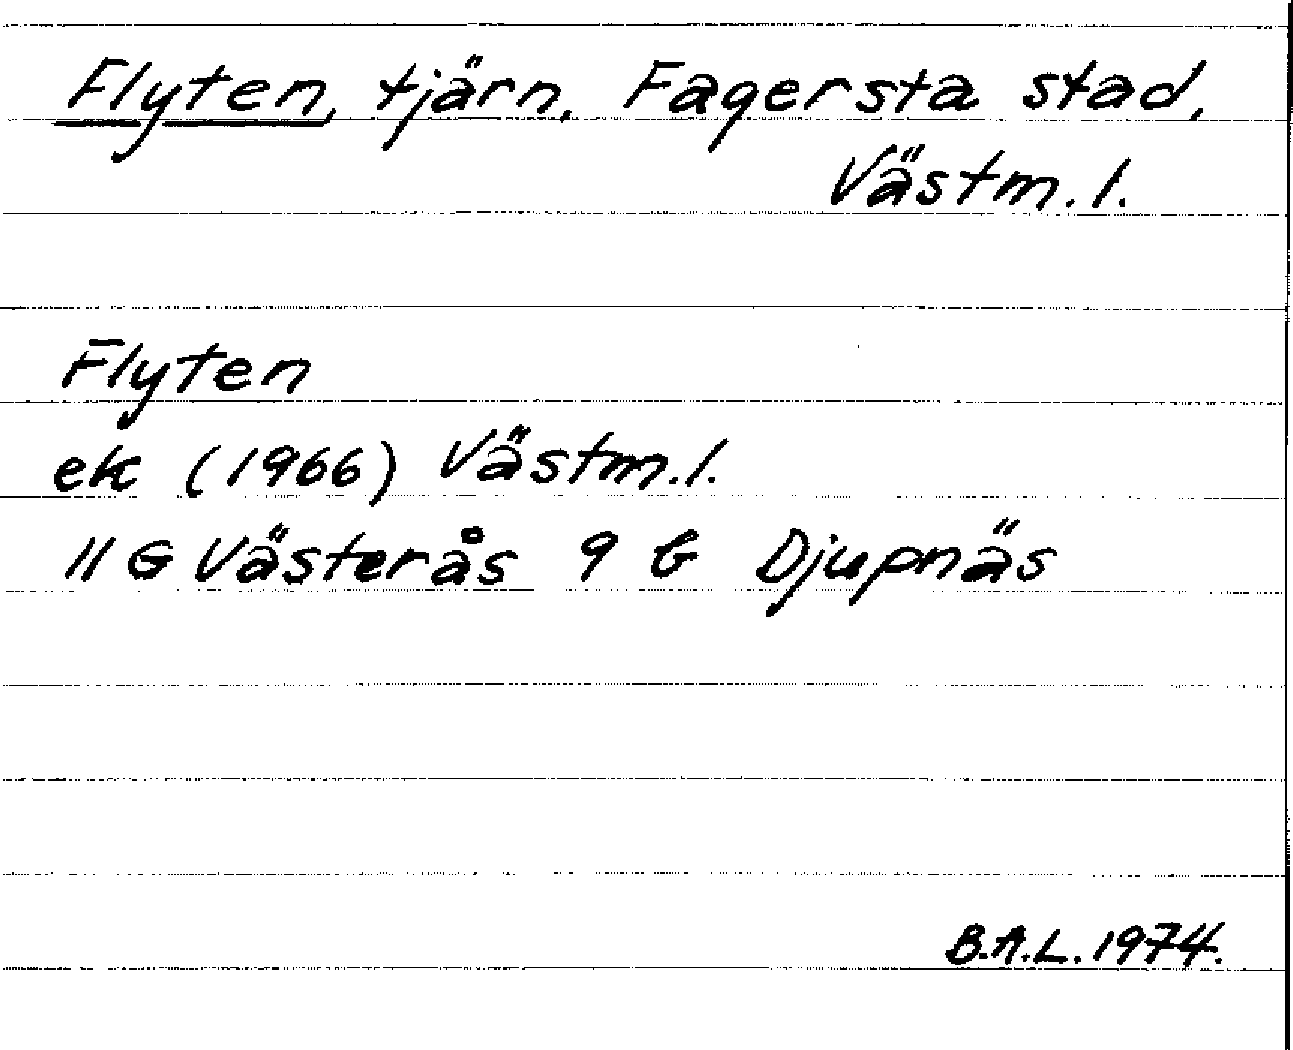 Flyten, tjärn, Fagersta stad,
Västm. l.
Flyten
ek (1966) Västm. l.
11 G Västerås 9 b Djupnäs
B.A.L. 1974.